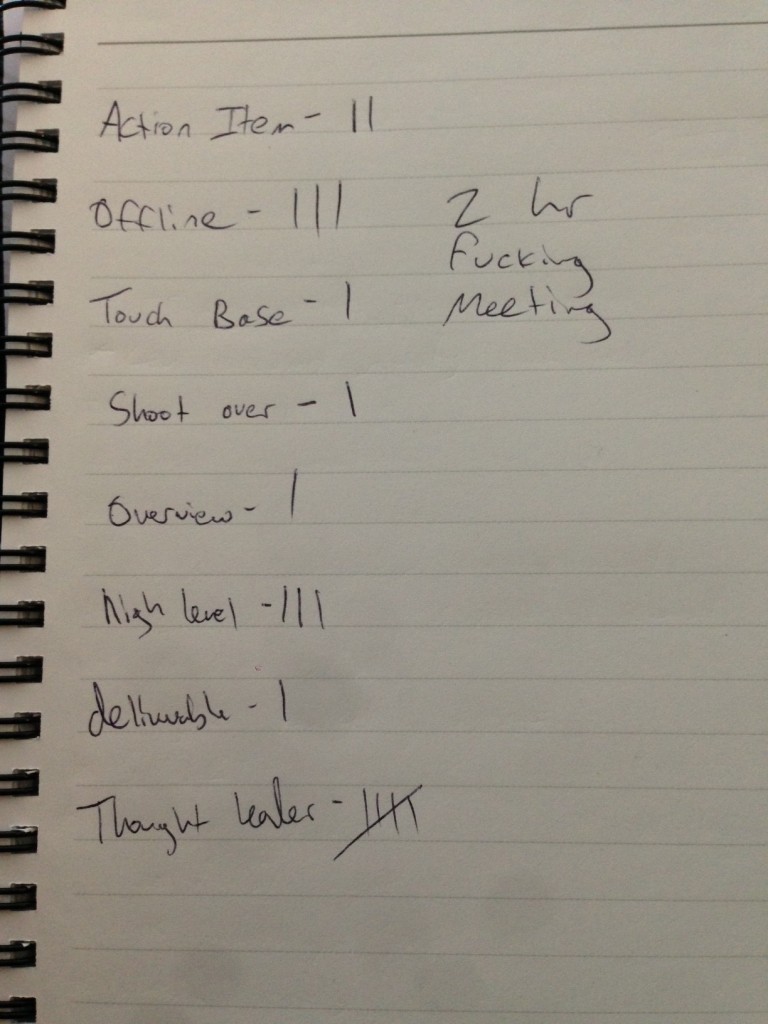 Action Item - II
Offline - III
2 hr
Fucking
Meeting
Touch Base - I
Shoot over - I
Overview - I
high level - III
deliverable - I
Thought leader - IIII